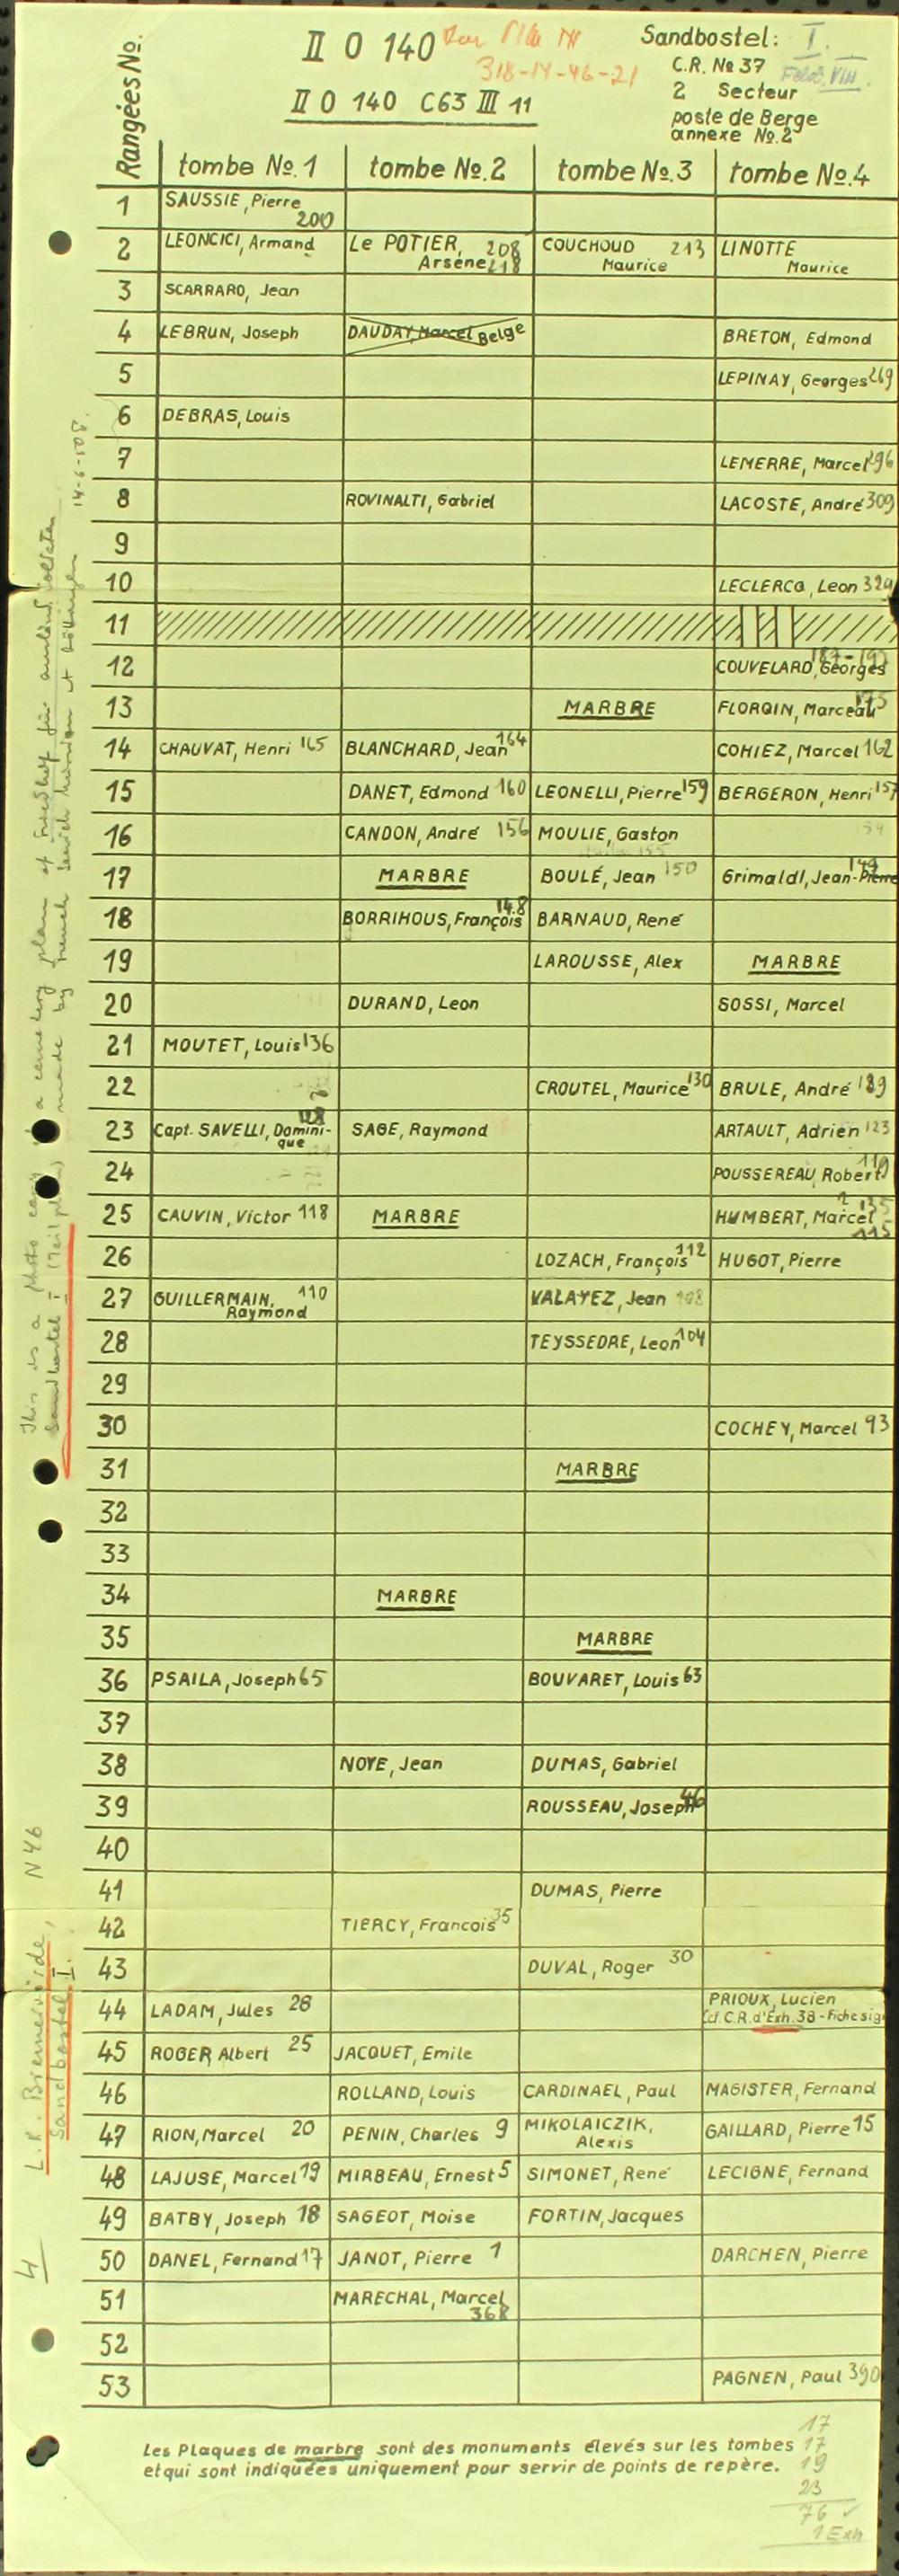 II O 140
318-14-46-21
II O 140 C63 III 11
Sandbostel: I.
C.R. No 37
2 Secteur
poste de Berge
annexe No. 2
Rangées No. tombe No. 1 tombe No. 2 tombe No. 3 tombe No. 4
1 SAUSSIE, Pierre 200
2 LEONCICI, Armand Le POTIER, Arsène 208 218 COUCHOUD Maurice 213 LINOTTE Maurice
3 SCARRARO, Jean
4 LEBRUN, Joseph DAUDAY, Marcel Belge BRETON, Edmond
5 LEPINAY, Georges 269
6 DEBRAS, Louis
7 LEMERRE, Marcel 296
8 ROVINALTI, Gabriel LACOSTE, André 309
9
10 LECLERCQ, Leon 329
11
12 COUVELARD, Georges
13 MARBRE FLORQIN, Marceau
14 CHAUVAT, Henri 165 BLANCHARD, Jean 164 COHIEZ, Marcel 162
15 DANET, Edmond 160 LEONELLI, Pierre 159 BERGERON, Henri 157
16 CANDON, André 156 MOULIE, Gaston
17 MARBRE BOULÉ, Jean 150 Grimaldi, Jean-Pierre 149
18 BORRIHOUS, François 148 BARNAUD, René
19 LAROUSSE, Alex MARBRE
20 DURAND, Leon SOSSI, Marcel
21 MOUTET, Louis 136
22 CROUTEL, Maurice 130 BRULE, André 129
23 Capt. SAVELLI, Domini-que 128 SAGE, Raymond ARTAULT, Adrien 123
24 POUSSEREAU, Robert 119
25 CAUVIN, Victor 118 MARBRE HUMBERT, Marcel 115
26 LOZACH, François 112 HUGOT, Pierre
27 GUILLERMAIN, Raymond 110 VALAYEZ, Jean 108
28 TEYSSEDRE, Leon 104
29
30 COCHEY, Marcel 93
31 MARBRE
32
33
34 MARBRE
35 MARBRE
36 PSAILA, Joseph 65 BOUVARET, Louis 63
37
38 NOYE, Jean DUMAS, Gabriel
39 ROUSSEAU, Joseph 46
40
41 DUMAS, Pierre
42 TIERCY, Francois 35
43 DUVAL, Roger 30
44 LADAM, Jules 28 PRIOUX, Lucien
(cf. C.R. d'Exh. 38 - Fiche sig
45 ROGER Albert 25 JACQUET, Emile
46 ROLLAND, Louis CARDINAEL, Paul MAGISTER, Fernand
47 RION, Marcel 20 PENIN, Charles 9 MIKOLAICZIK, Alexis GAILLARD, Pierre 15
48 LAJUSE, Marcel 19 MIRBEAU, Ernest 5 SIMONET, René LECIGNE, Fernand
49 BATBY, Joseph 18 SAGEOT, Moise FORTIN, Jacques
50 DANEL, Fernand 17 JANOT, Pierre 1 DARCHEN, Pierre
51 MARECHAL, Marcel 368
52
53 PAGNEN, Paul 390
Les Plaques de marbre sont des monuments élevés sur les tombes
et qui sont indiquées uniquement pour servir de points de repère.
17
17
19
23
76 ✓
1 Exh
This is a photo copy of a cemetery plan of Friedhof für ausländ. Soldaten
Sandbostel I made by french
14-6-508.
L.K. Bremervörde, N46
Sandbostel I.
4